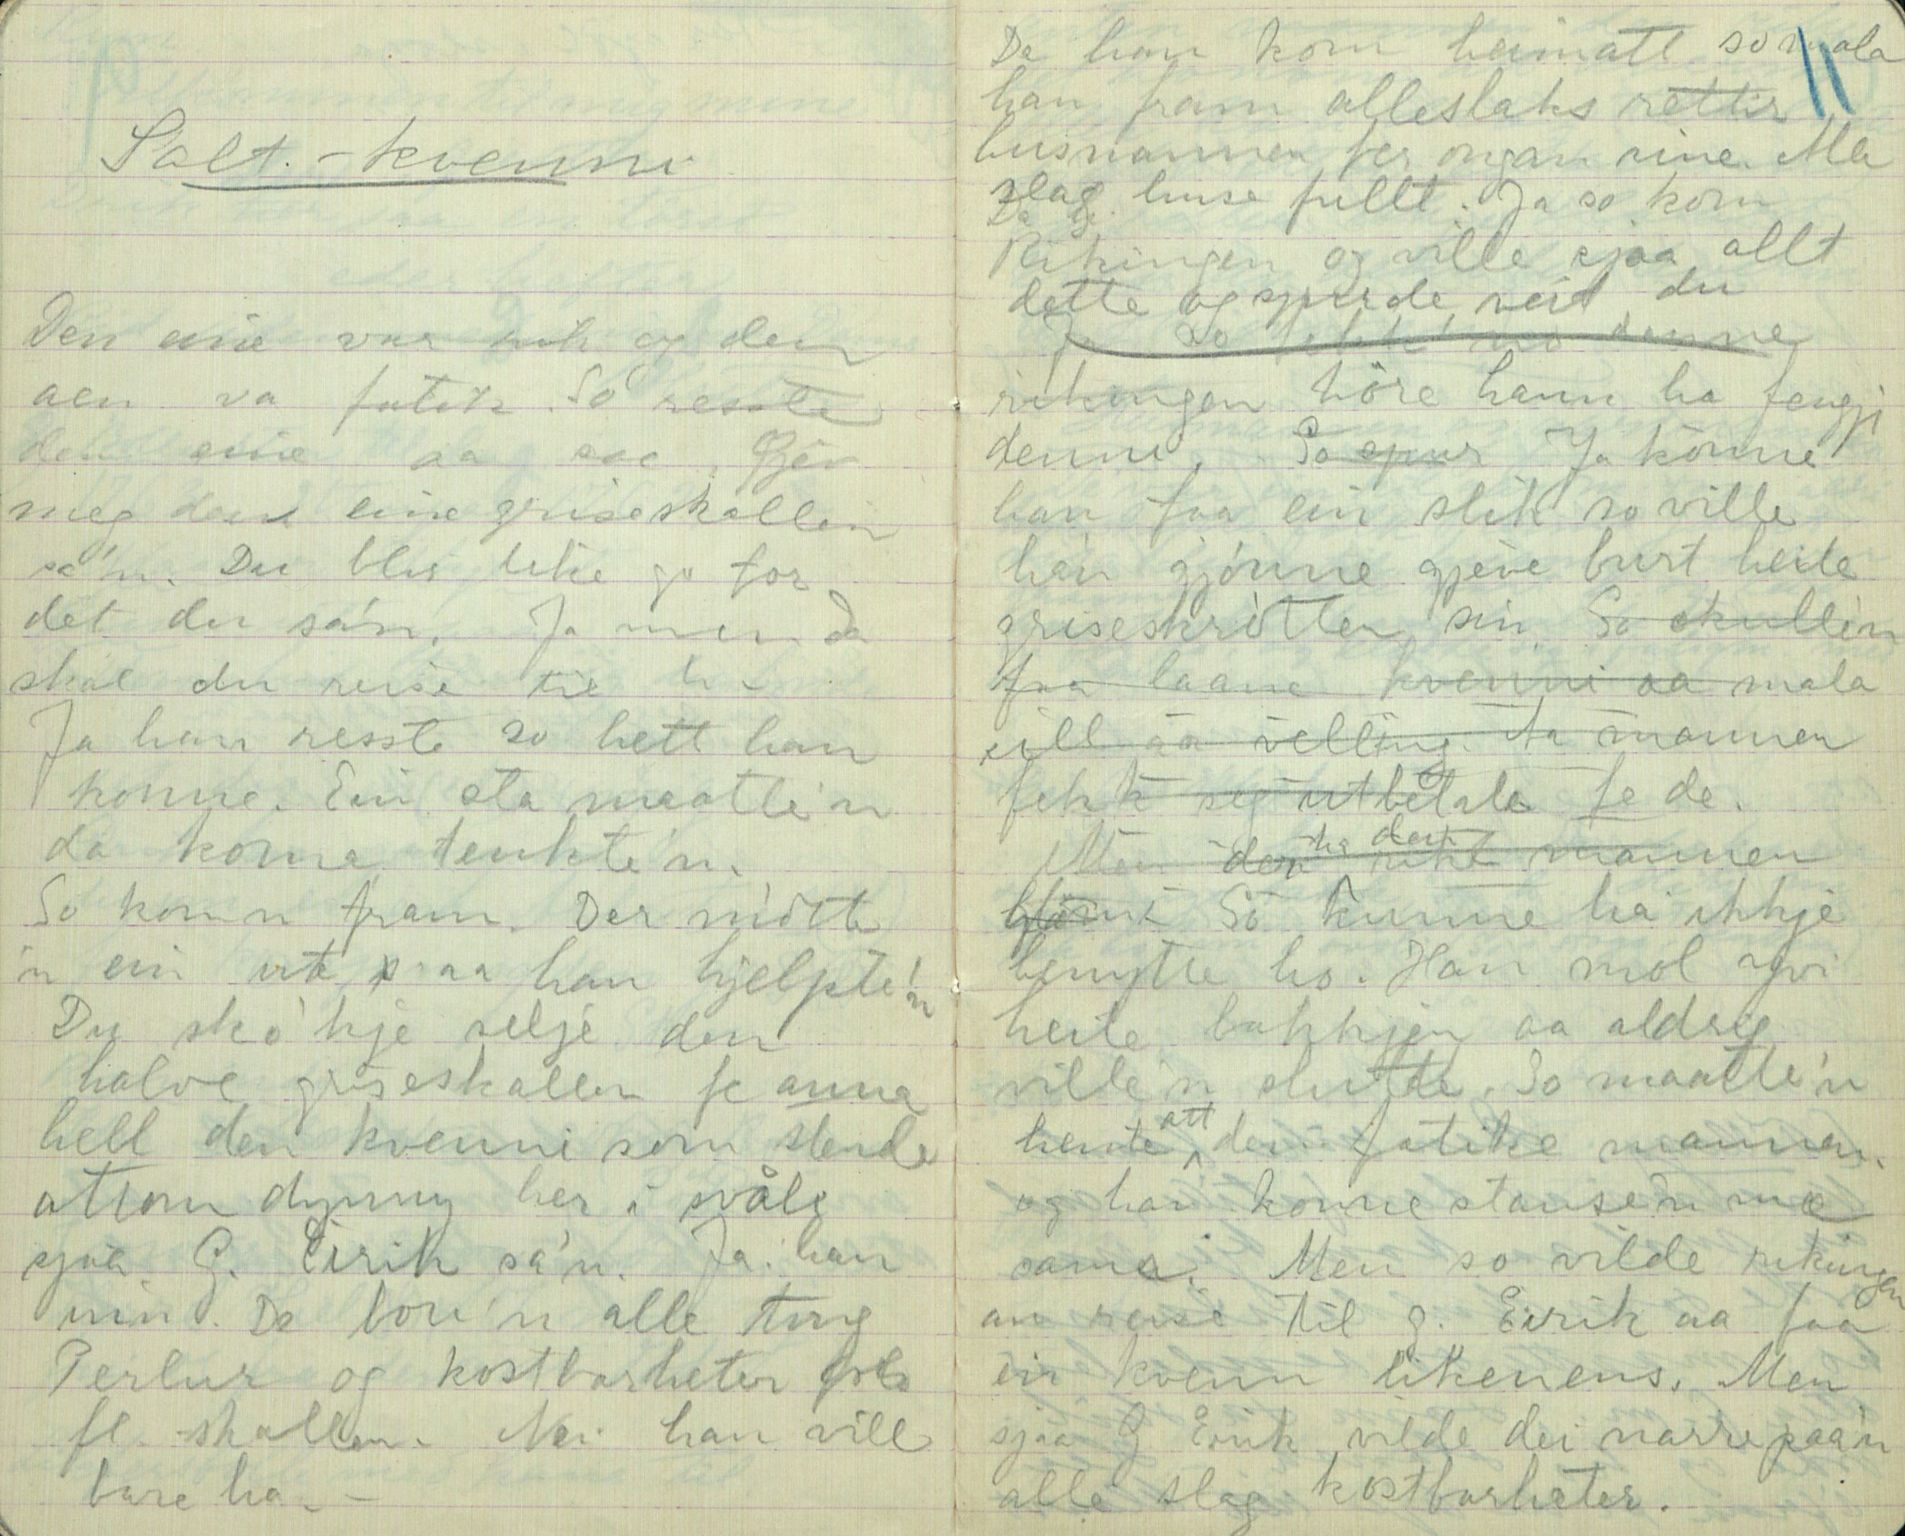 Salt. - kvenni
Den eine var rik og den
aen va fatik. So resste
den eine aa sae. Gjev
meg den eine griseskallen
sa'n. Du blir like go for
det du sa'n. Ja men da
skal du reise til h-
Ja han resste so hett han
konne. Ein sta maatte'n
da koma tenkte'n.
So kom'n fram. Der møtte
'n ein ute, aa han hjelpte'n
Du sko'kje selje den
halve griseskallen fe anna
hell den kvenni som stende
attom dynny her i svåle
sjaa G. Eirik sa'n. Ja han
inn. Da bou'n alle ting
Perlur og kostbarheter
fe skallen. Nei han vill
bare ha. -
Da han kom heimatt so mala 11
han fram alleslaks rettir
husmannen fer ongan sine. Alle
slag huse fullt. Ja so kom
Da
Rikingen og ville sjaa allt
dette og spurde veit du
Ja so fekk no denne
rikingen höre hann ha fengji
denni. So spur Ja konne
han faa ein slik so ville
han gjönne gjeve burt heile
griseskrötten sin. So skulle'n
faa laana kvenni aa mala
sill aa velling. Aa mannen
fekk seg utbetala fe de.
Men den rike mannen
ha den
So kunne ha ikkje
benytte ho. Han mol yvi
heile bakkjen aa aldrig
ville'n slutte. So maatte'n
hente att den fatike mannen.
og han konne stanse'n me
sama. Men so vilde rikingen
an reise til g. Eirik aa faa
ein kvenn likenens. Men
sjaa G Eirik vilde dei narre paa'n
alle slag kostbarheter.